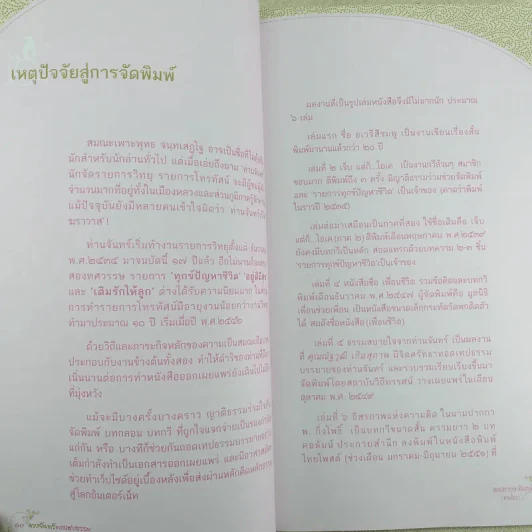 เหตุปัจจัยสู่การจัดพิมพ์
สมณะเพาะพุทธ จนฺทเสฏฺโฐ อาจเป็นชื่อที่ไม่คุ้น
นักสำหรับนักอ่านทั่วไป แต่เมื่อเอ่ยถึงนาม
นักจัดรายการวิทยุ รายการโทรทัศน์ จะมีผู้
จำนวนมากที่อยู่ทั้งในเมืองหลวงและส่วนภูมิภาครู้จัก
แม้ปัจจุบันยังมีหลายคนเข้าใจผิดว่า ท่านจันทร์
ฆราวาส'!
ท่านจันทร์เริ่มทำงานรายการวิทยุตั้งแต่
พ.ศ.๒๕๓๕ มาจนบัดนี้ ๑๗ ปีแล้ว อีกไม่นานก็
สองทศวรรษ รายการ 'ทุกข์ปัญหาชีวิต'
และ 'เติมรักให้ลูก' ต่างได้รับความนิยมมาก ในขณะ
การทำรายการโทรทัศน์มีอายุงานน้อยกว่างานวิทยุ
ทำมาประมาณ ๑๐ ปี เริ่มเมื่อปี พ.ศ.๒๕๔๒
ด้วยวิถีและภาระกิจหลักของความเป็นสมณะ
ประกอบกับงานข้างต้นทั้งสอง ทำให้ดำริของท่าน
เนิ่นนานต่อการทำหนังสือออกเผยแพร่ยังเดินไปไม่ถึง
ที่มุ่งหวัง
แม้จะมีบางครั้งบางคราว ญาติธรรมร่วมใจกัน
จัดพิมพ์ บทกลอน บทกวี ที่ถูกใจแจกจ่ายเป็น
แก่กัน หรือ บางทีก็ช่วยกันถอดเทปธรรมบรรยาย
เต็มกำลังทำเป็นเอกสารออกเผยแพร่ และมีอาสาสมัคร
ช่วยทำเว็บไซต์อยู่เบื้องหลังเพื่อส่งผ่านหลักคิดหลักธรรม
สู่โลกอินเตอร์เน็ท
ผลงานที่เป็นรูปเล่มหนังสือจึงมีไม่มากนัก ประมาณ
๖ เล่ม
เล่มแรก ชื่อ อเวจีสีชมพู เป็นงานเขียนเรื่องสั้น
พิมพ์มานานแล้วกว่า ๒๐ ปี
เล่มที่ ๒ เจ็บ แต่ก็..โอเค เป็นงานกวีล้วนๆ สมาชิก
ชอบมาก ตีพิมพ์ถึง ๓ ครั้ง มีญาติธรรมร่วมช่วยจัดพิมพ์
และ 'รายการทุกข์ปัญหาชีวิต' เป็นเจ้าของ (คาดว่าพิมพ์
ในราวปี ๒๕๓๕)
เล่มต่อมาเสมือนเป็นภาคที่สอง ใช้ชื่อเดิมคือ เจ็บ
แต่ก็..โอเค(ภาค ๒) ตีพิมพ์เดือนพฤษภาคม พ.ศ.๒๕๓๙
ยังคงมีบทกวีเป็นหลัก สอดแทรกด้วยบทความ ๒-๓ ชิ้น
'รายการทุกข์ปัญหาชีวิต'เป็นเจ้าของ
เล่มที่ ๔ หนังสือชื่อ เพื่อนชีวิต รวมข้อคิดและบทกวี
พิมพ์เดือนธันวาคม พ.ศ.๒๕๔๗ ผู้จัดพิมพ์คือ มูลนิธิ
เพื่อนช่วยเพื่อน เป็นหนังสือขนาดเล็กกระทัดรัดพกติดตัว
ได้ สมดังชื่อหนังสือ (เพื่อนชีวิต)
เล่มที่ ๕ ธรรมสบายใจจากท่านจันทร์ เป็นผลงาน
ที่ คุณณัฐวุฒิ เกิดสุภาพ มีจิตศรัทธาถอดเทปธรรม
บรรยายของท่านจันทร์ และรวบรวมเรียบเรียงขึ้นมา
จัดพิมพ์โดยสถาบันวิถีทรรศน์ วางเผยแพร่ในเดือน
ตุลาคม พ.ศ. ๒๕๔๙
เล่มที่ ๖ อิสรภาพแห่งความคิด ในนามปากกา
พ. กิ่งโพธิ์ เป็นบทกวีขนาดสั้น ความยาว ๒ บท
คอลัมน์ ประกายสำนึก ลงพิมพ์ในหนังสือพิมพ์
ไทยโพสต์ (ช่วงเดือน มกราคม-มิถุนายน ๒๕๕๑) ที่